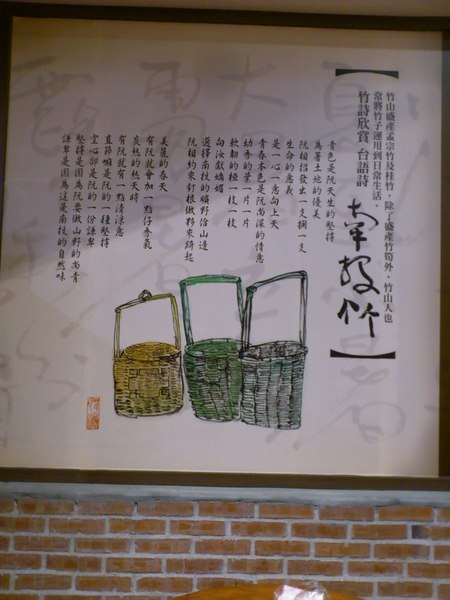 竹山盛產孟宗竹及桂竹，除了盛產竹筍外，竹山人也
常將竹子運用到日常生活。
竹詩欣賞 台語詩
【南投竹】
青色是阮天生的堅持
為著土地的優美
阮相招發出一支擱一支
生命的意義
是一心一意向上天
青春本色是阮尚深的情意
幼秀的葉一片一片
軟韌的椏一枝一枝
向汝獻嬌媚
選擇南投的曠野佮山邊
阮相約來釘根做夥來
美麗的春天
有阮就會加一點仔秀氣
炎熱的熱天時
有阮就有一點清涼意
直節嘛是阮的一種堅持
空心卻是阮的一份謙卑
堅持是因為阮要做山野的尚青
謙卑是因為這是南投的自然味